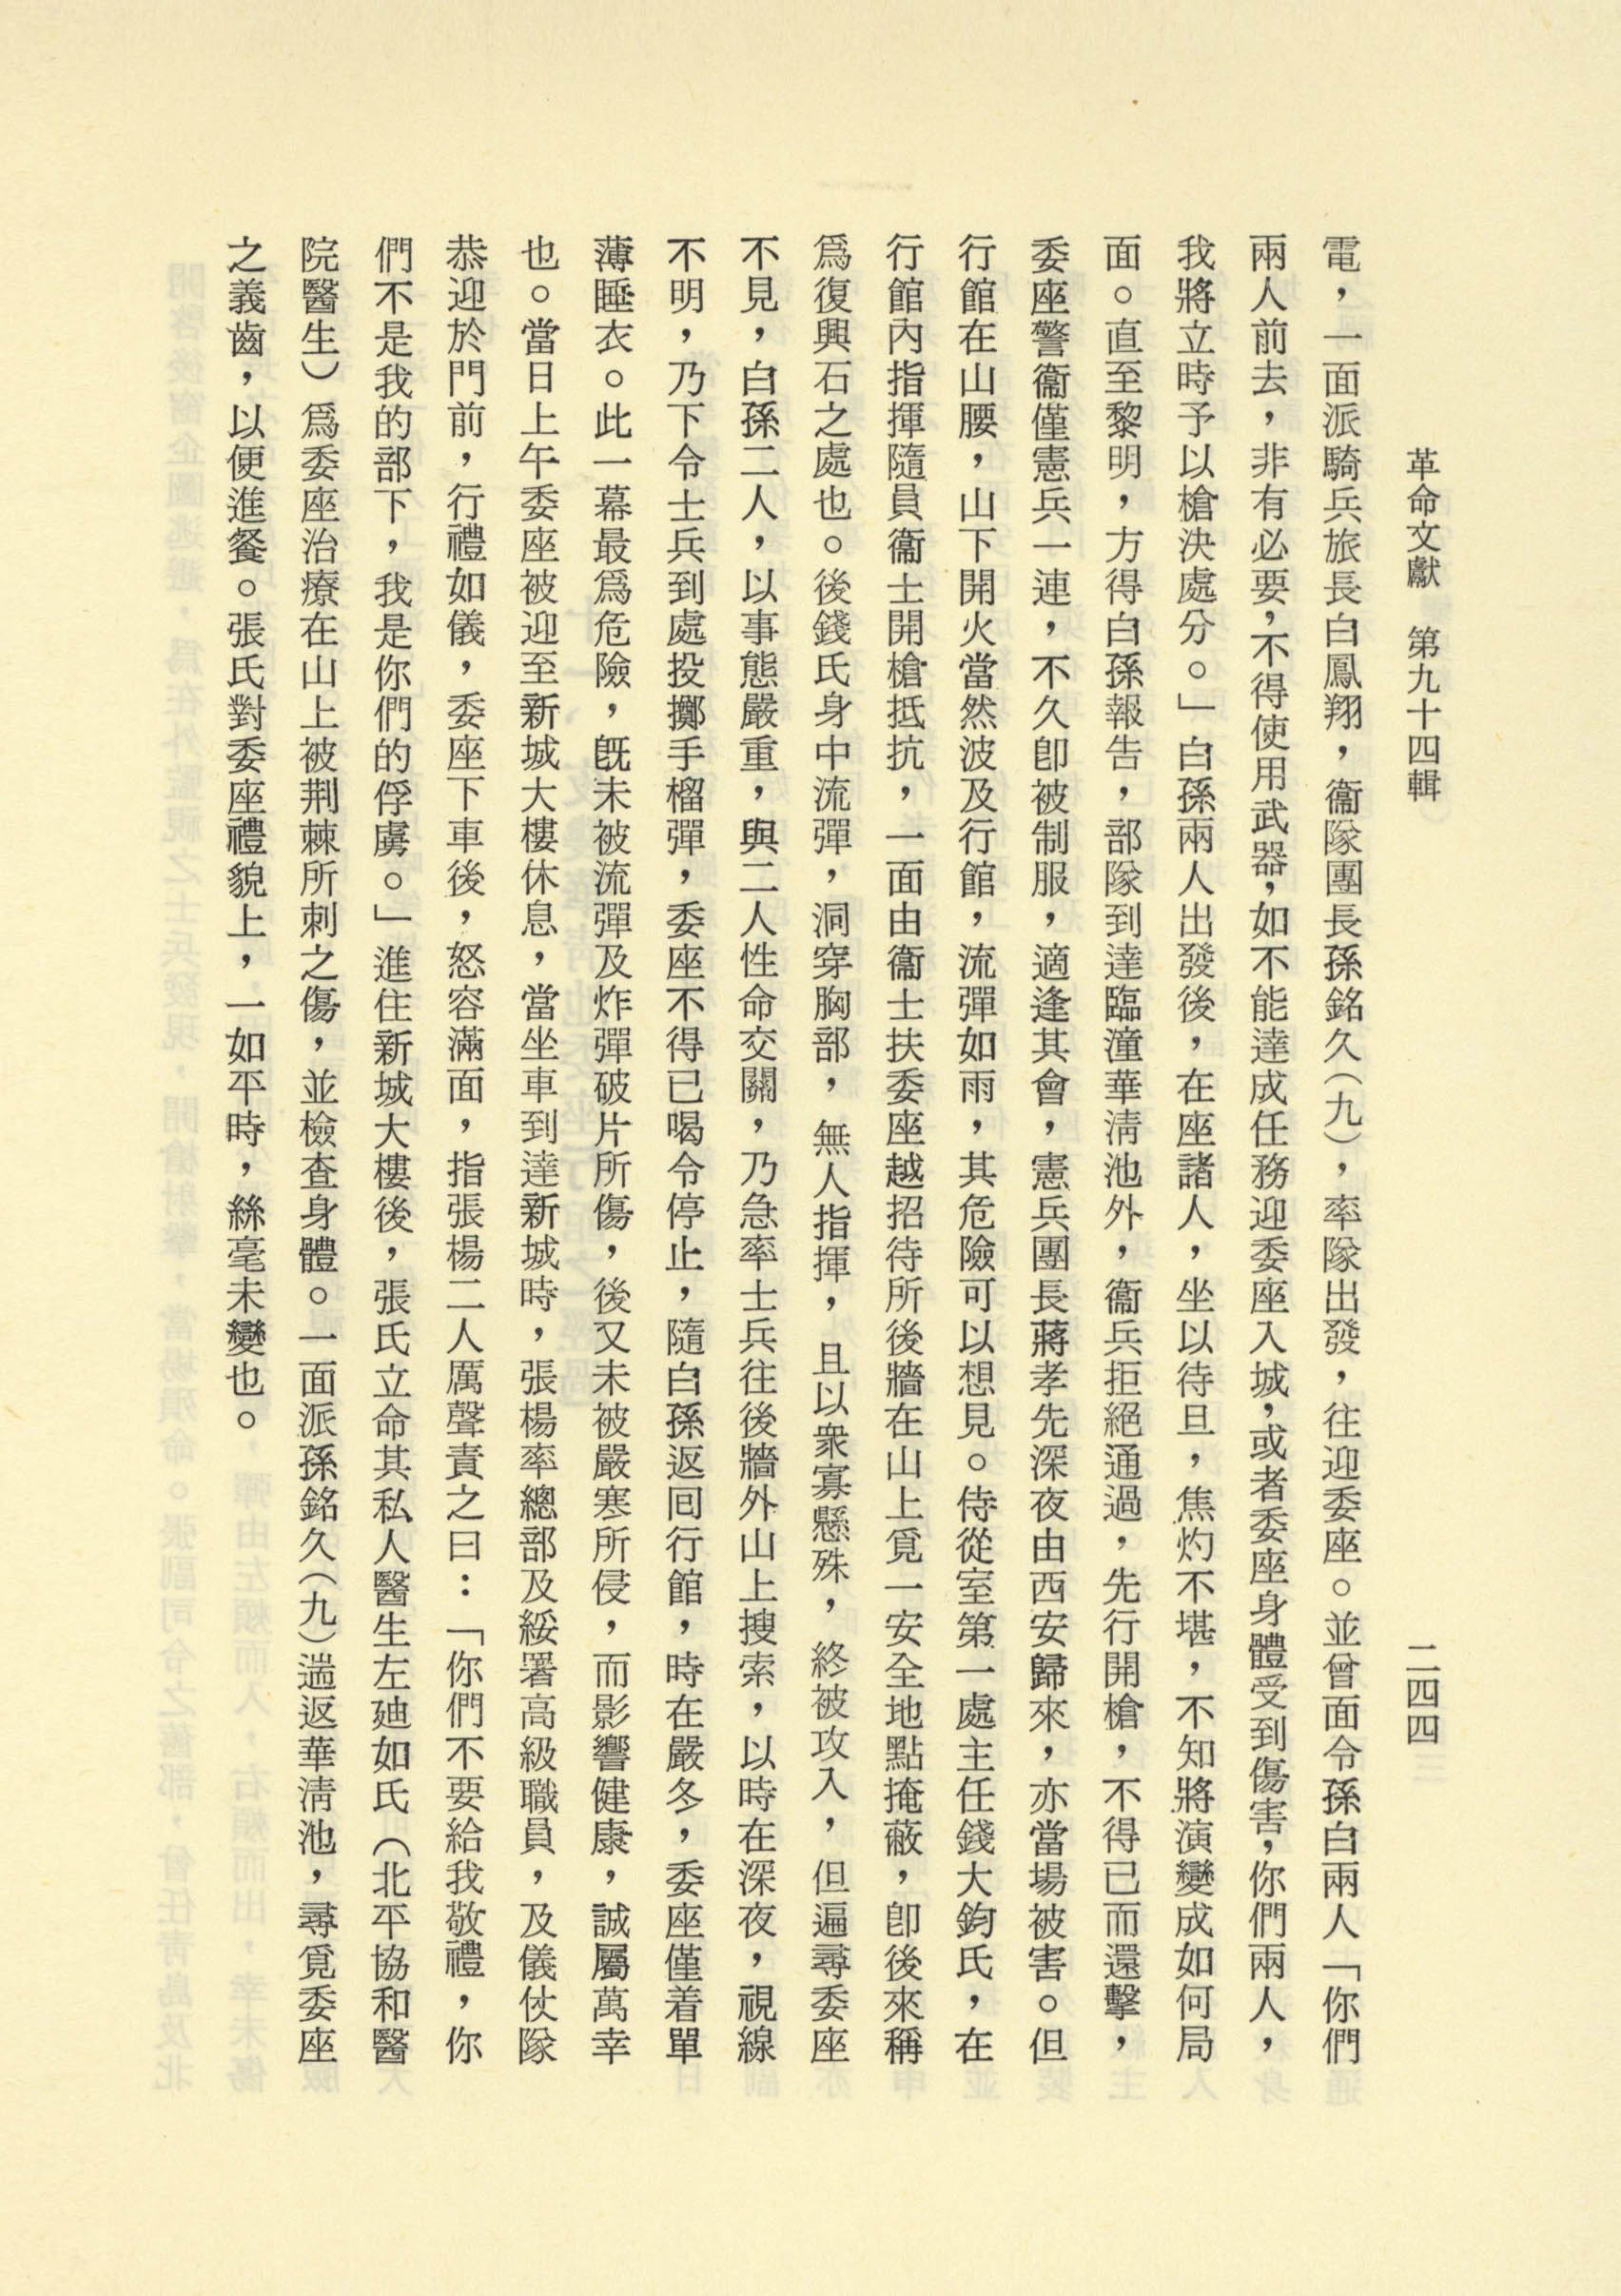 革命文獻　第九十四輯
二四四
電，一面派騎兵旅長白鳳翔，衞隊團長孫銘久（九），率隊出發，往迎委座。並曾面令孫白兩人「你們
兩人前去，非有必要，不得使用武器，如不能達成任務迎委座入城，或者委座身體受到傷害，你們兩人，
我將立時予以槍決處分。」白孫兩人出發後，在座諸人，坐以待旦，焦灼不堪，不知將演變成如何局
面。直至黎明，方得白孫報告，部隊到達臨潼華淸池外，衞兵拒絕通過，先行開槍，不得已而還擊，
委座警衞僅憲兵一連，不久卽被制服，適逢其會，憲兵團長蔣孝先深夜由西安歸來，亦當場被害。但
行館在山腰，山下開火當然波及行館，流彈如雨，其危險可以想見。侍從室第一處主任錢大鈞氏，在
行館內指揮隨員衞士開槍抵抗，一面由衞士扶委座越招待所後牆在山上覓一安全地點掩蔽，卽後來稱
爲復興石之處也。後錢氏身中流彈，洞穿胸部，無人指揮，且以衆寡懸殊，終被攻入，但遍尋委座
不見，白孫二人，以事態嚴重，與二人性命交關，乃急率士兵往後牆外山上搜索，以時在深夜，視線
不明，乃下令士兵到處投擲手榴彈，委座不得已喝令停止，隨白孫返囘行館，時在嚴冬，委座僅着單
薄睡衣。此一幕最爲危險，旣未被流彈及炸彈破片所傷，後又未被嚴寒所侵，而影響健康，誠屬萬幸
也。當日上午委座被迎至新城大樓休息，當坐車到達新城時，張楊率總部及綏署高級職員，及儀仗隊
恭迎於門前，行禮如儀，委座下車後，怒容滿面，指張楊二人厲聲責之曰：「你們不要給我敬禮，你
們不是我的部下，我是你們的俘虜。」進住新城大樓後，張氏立命其私人醫生左廸如氏（北平協和醫
院醫生）爲委座治療在山上被荆棘所刺之傷，並檢查身體。一面派孫銘久（九）遄返華淸池，尋覓委座
之義齒，以便進餐。張氏對委座禮貌上，一如平時，絲毫未變也。